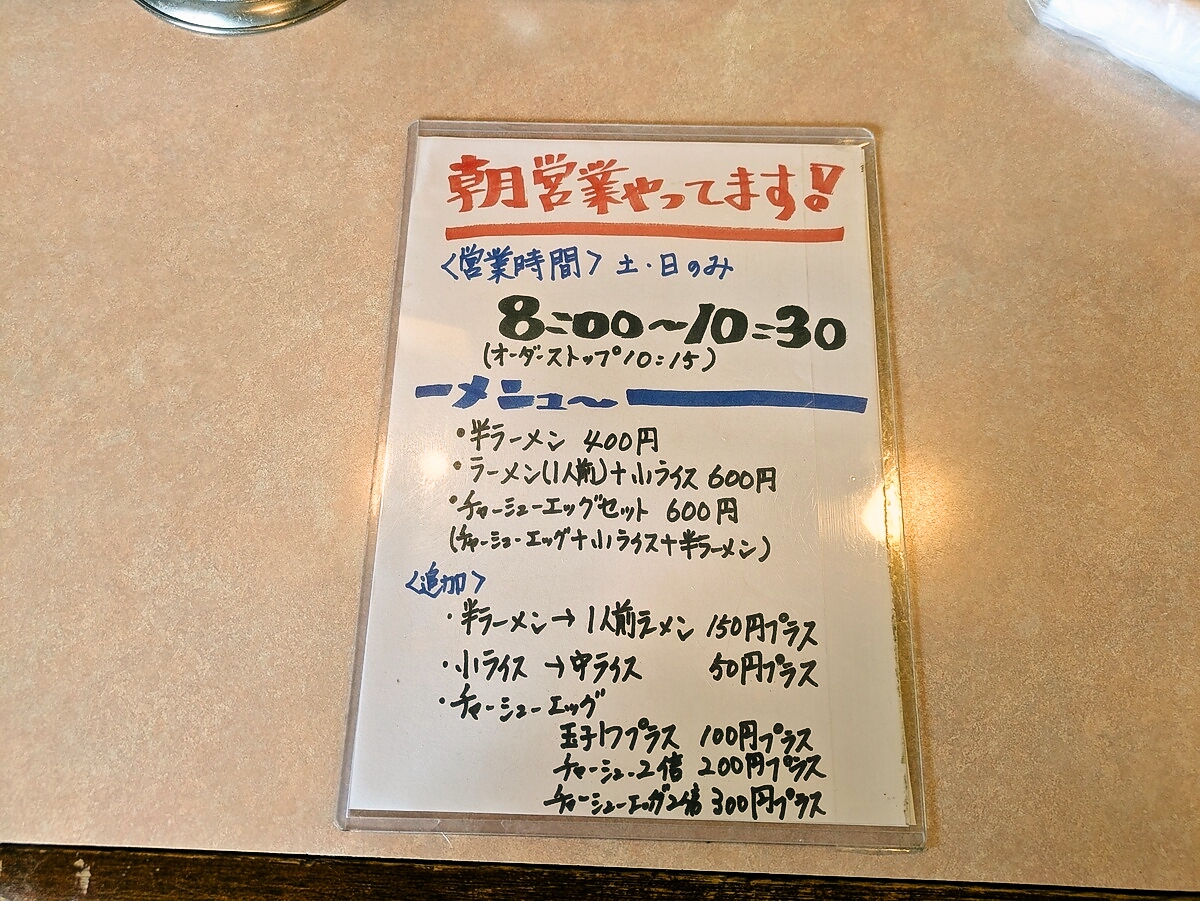 朝営業やってます!
〈営業時間〉土・日のみ
8:00〜10:30
(オーダーストップ10:15)
ーメニュ〜
・半ラーメン 400円
・ラーメン(1人前)+小ライス 600円
・チャーシューエッグセット 600円
(チャーシューエッグ+小ライス+半ラーメン)
〈追加〉
・半ラーメン→1人前ラーメン 150円プラス
・小ライス→中ライス 50円プラス
・チャーシューエッグ
玉子1つプラス 100円プラス
チャーシュー2倍 200円プラス
チャーシューエッグ2倍 300円プラス